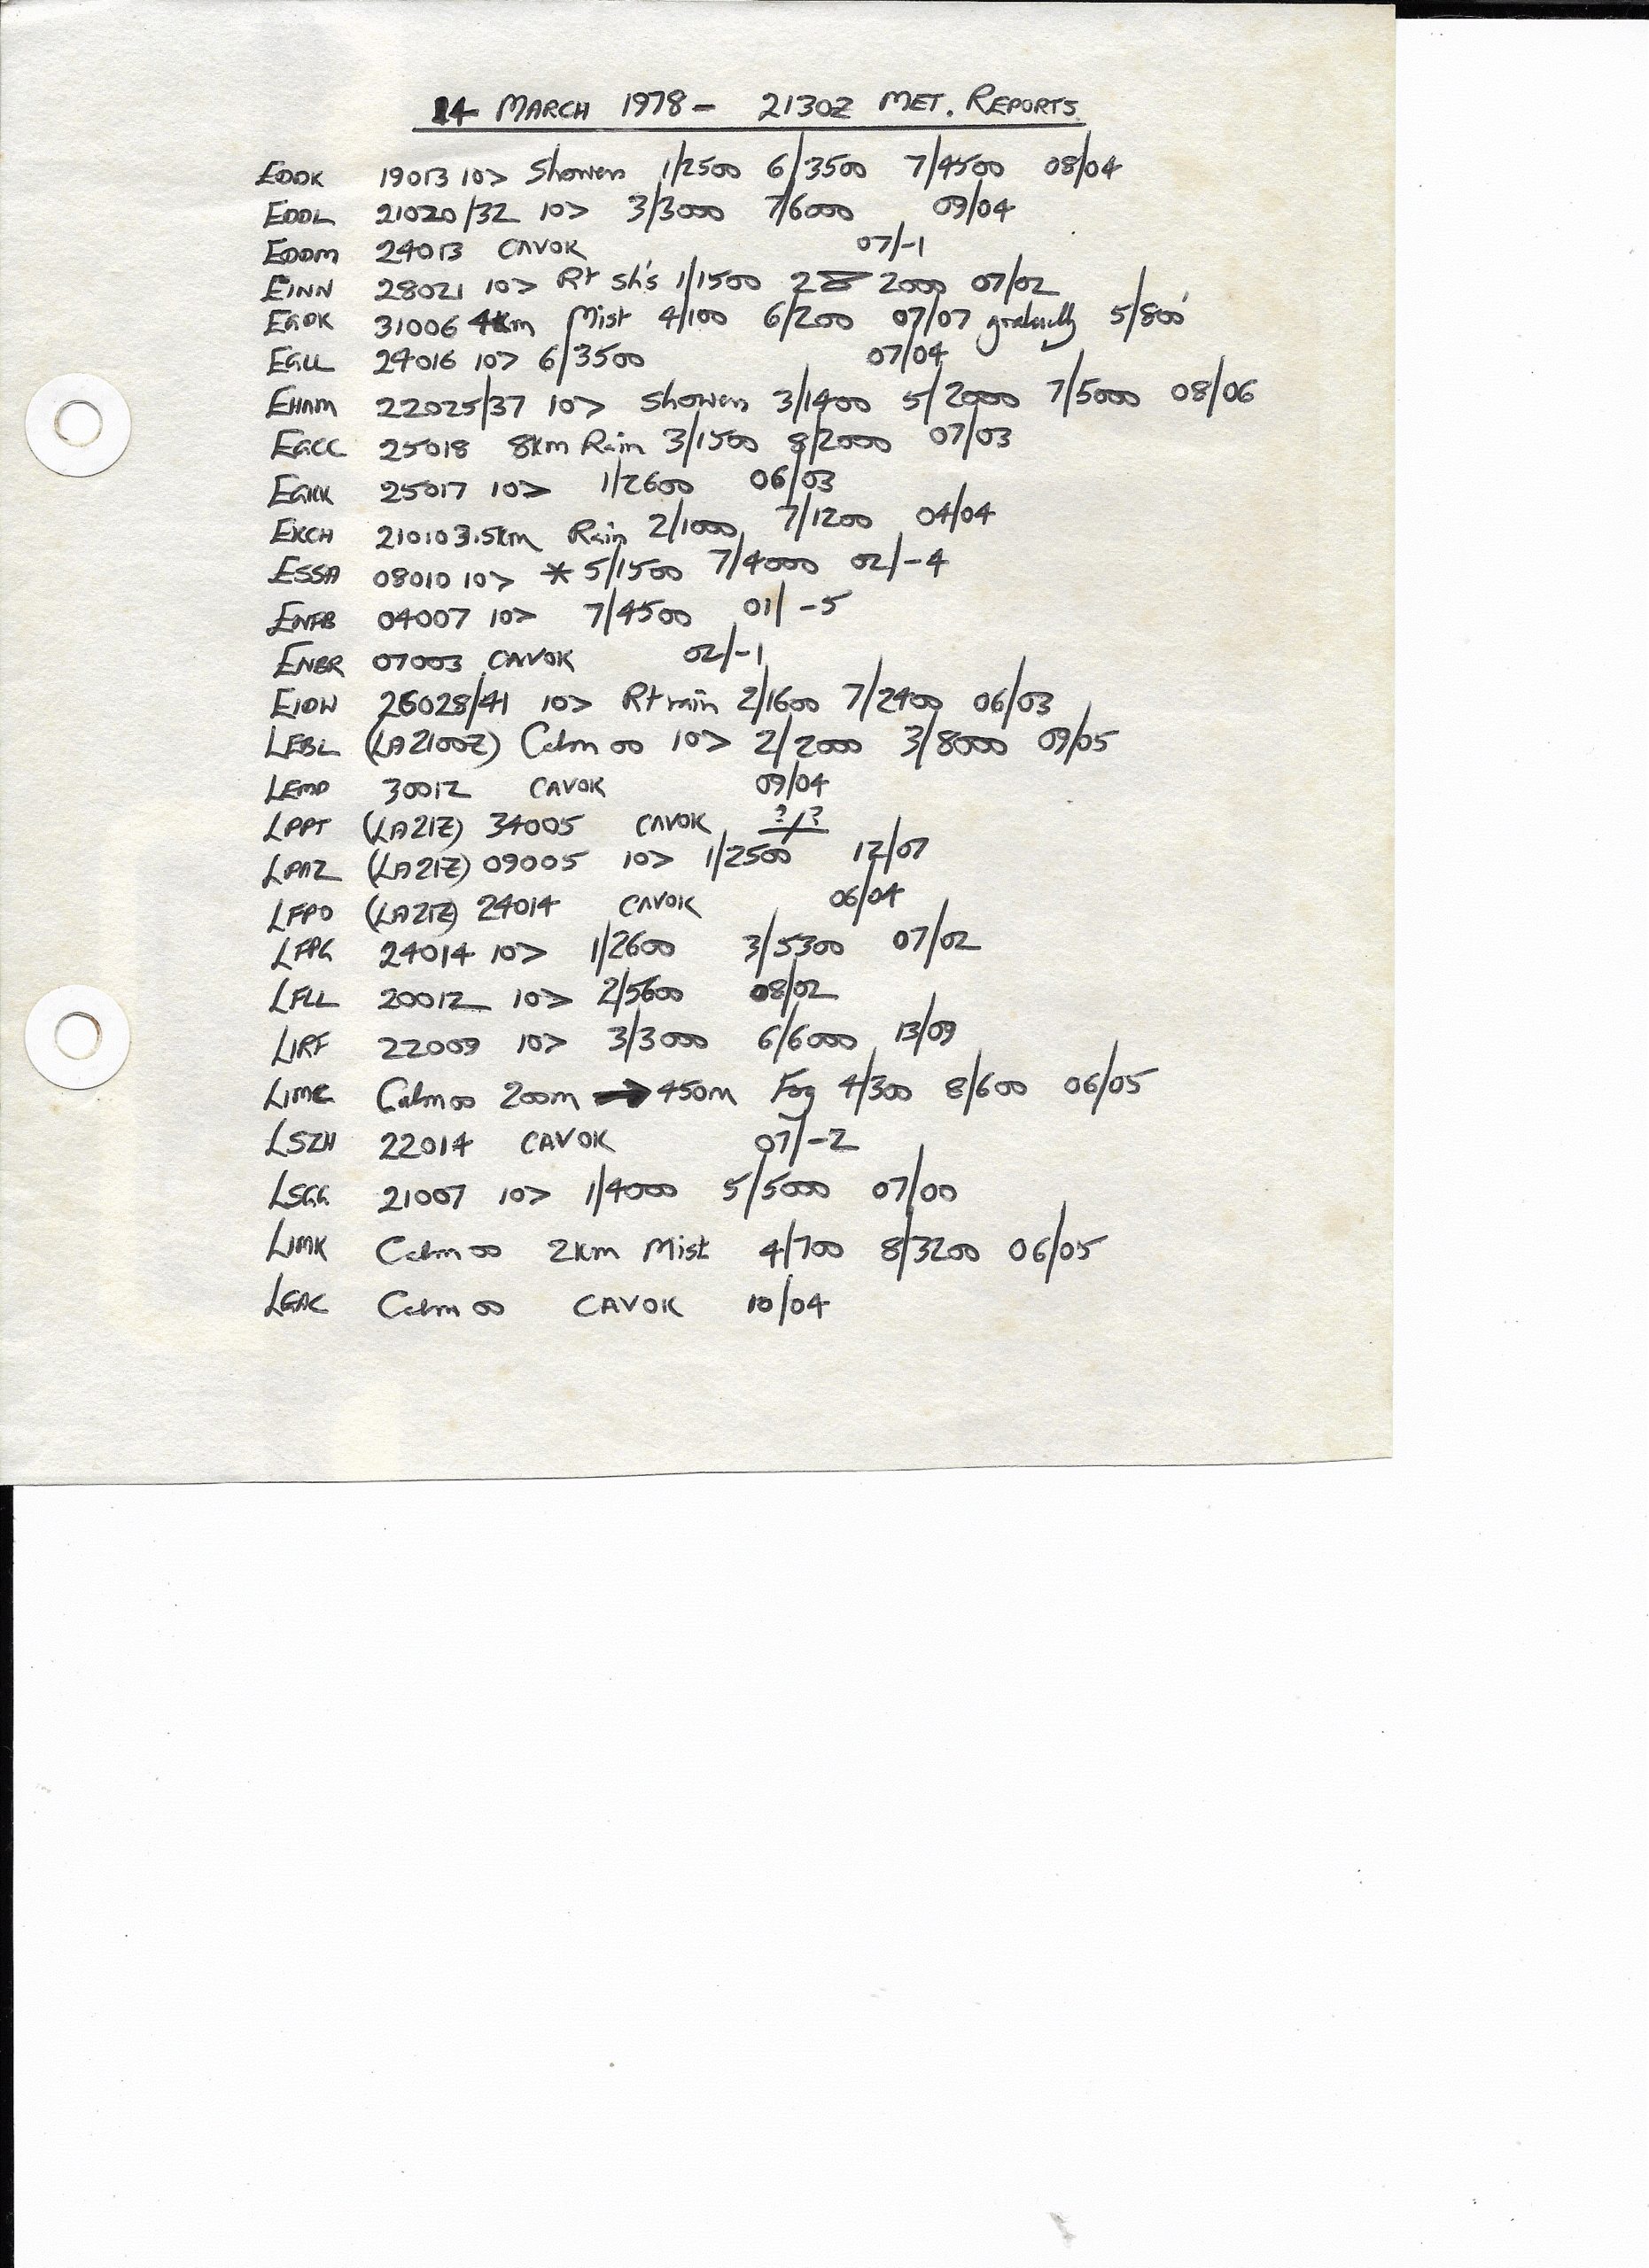 14 MARCH 1978 - 2130Z MET. REPORTS
EDDK 19013 10> Showers 1/2500 6/3500 7/4500 08/04
EDDL 21020/32 10> 3/3000 7/6000 09/04
EDDM 24013 CAVOK 07/-1
EINN 28021 10> Rt sh's 1/1500 2000 07/02
31006 4km Mist 4/100 6/200 07/07 gradually 5/800'
EGLL 24016 10> 6/3500 07/04
EHAM 22025/37 10> Showers 3/1400 5/2000 7/5000 08/06
EGCC 25018 8km Rain 3/1500 8/2000 07/03
EGKK 25017 10> 1/2600 06/03
EKCH 21010 3.5km Rain 2/1000 7/1200 04/04
ESSA 08010 10> * 5/1500 7/4000 02/-4
ENFB 04007 10> 7/4500 01/-5
ENBR 07003 CAVOK 02/-1
EIDW 26028/41 10> Rt rain 2/1600 7/2400 06/03
LEBL (LA2100Z) Calm 00 10> 2/2000 3/8000 09/05
LEMD 30012 CAVOK 09/04
LPPT (LA21Z) 34005 CAVOK ?/?
LPAZ (LA21Z) 09005 10> 1/2500 12/07
LFPO (LA21Z) 24014 CAVOK 06/04
LFPG 24014 10> 1/2600 3/5300 07/02
LFLL 20012 10> 2/5600 08/02
LIRF 22009 10> 3/3000 6/6000 13/09
LIMC Calm 00 200m → 450m Fog 4/300 8/600 06/05
LSZH 22014 CAVOK 07/-2
LSGG 21007 10> 1/4000 5/5000 07/00
LIMK Calm 00 2km Mist 4/700 8/3200 06/05
LGAC Calm 00 CAVOK 10/04